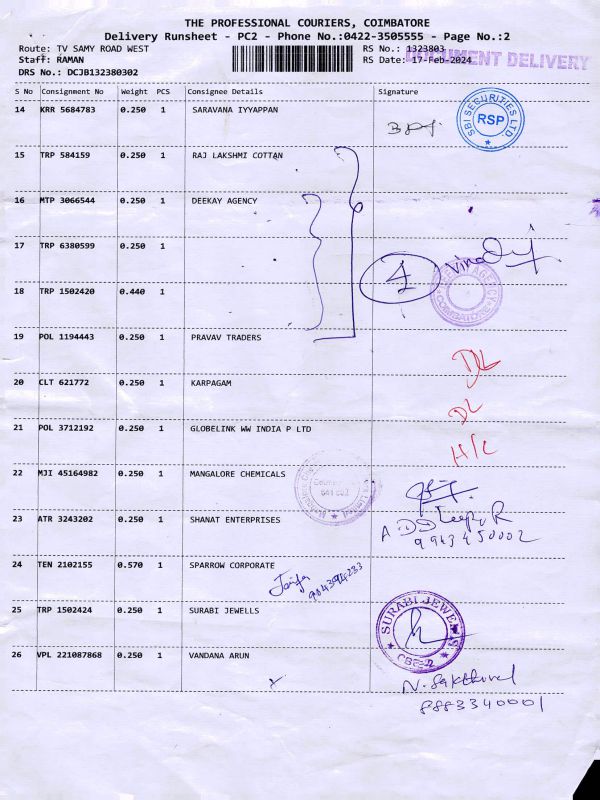 THE PROFESSIONAL COURIERS, COIMBATORE
Delivery Runsheet - PC2 - Phone No.:0422-3505555 - Page No.:2
Route: TV SAMY ROAD WEST RS No.: 1323803
DOCUMENT DELIVERY
Staff: RAMAN RS Date: 17-Feb-2024
DRS No.: DCJB132380302
S No Consignment No Weight PCS Consignee Details Signature
14 KRR 5684783 0.250 1 SARAVANA IYYAPPAN
SBI SECURITIES LTD
RSP
15 TRP 584159 0.250 1 RAJ LAKSHMI COTTAN
16 MTP 3066544 0.250 1 DEEKAY AGENCY
17 TRP 6380599 0.250 1
4
AGENCY
COIMBATORE
18 TRP 1502420 0.440 1
19 POL 1194443 0.250 1 PRAVAV TRADERS
DL
20 CLT 621772 0.250 1 KARPAGAM
DL
21 POL 3712192 0.250 1 GLOBELINK WW INDIA P LTD
H/C
22 MJI 45164982 0.250 1 MANGALORE CHEMICALS
23 ATR 3243202 0.250 1 SHANAT ENTERPRISES
9943450002
24 TEN 2102155 0.570 1 SPARROW CORPORATE
25 TRP 1502424 0.250 1 SURABI JEWELLS
SURABI JEWELS
CBE-2
26 VPL 221087868 0.250 1 VANDANA ARUN
N. Sakthivel
8883340001